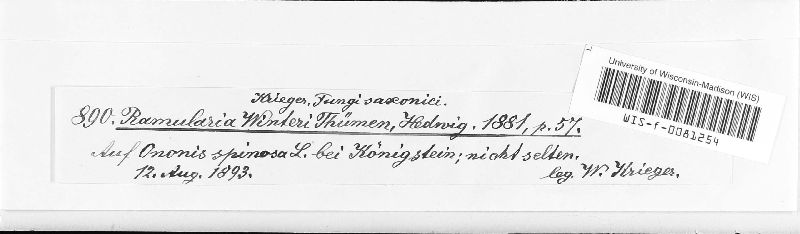 Krieger, Fungi saxonici.
890. Ramularia Winteri Thümen, Hedwig. 1881, p. 57.
Auf Ononis spinosa L. bei Königstein; nicht selten.
12. Aug. 1893. leg. W. Krieger.
University of Wisconsin-Madison (WIS)
WIS-f-0081254